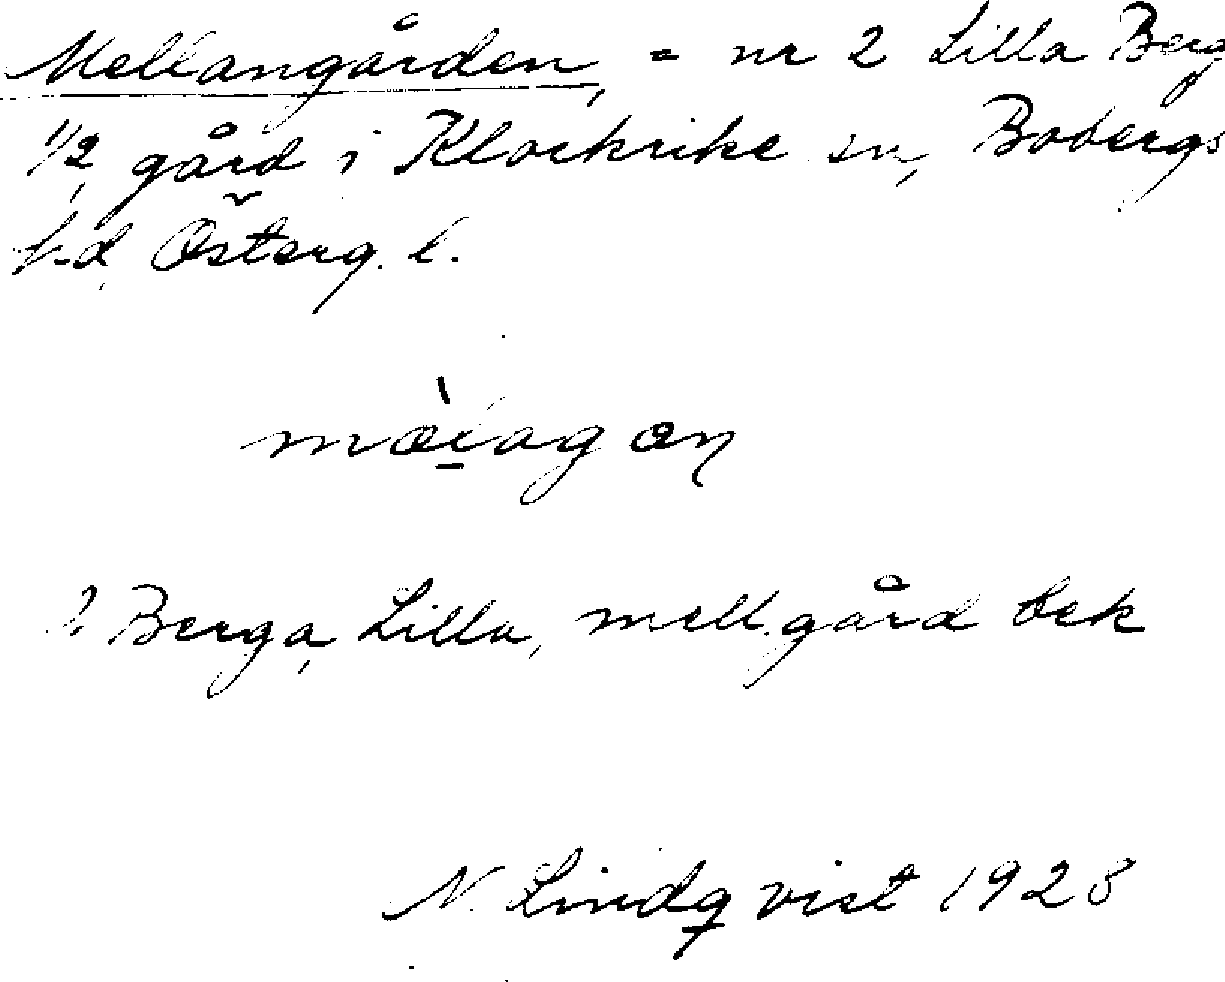 Mellangården, = nr 2 Lilla Berg
1/2 gård i Klockrike sn, Bobergs
hd, Österg. l.
Berga, Lilla, mell.gård bek
N. Lindqvist 1928